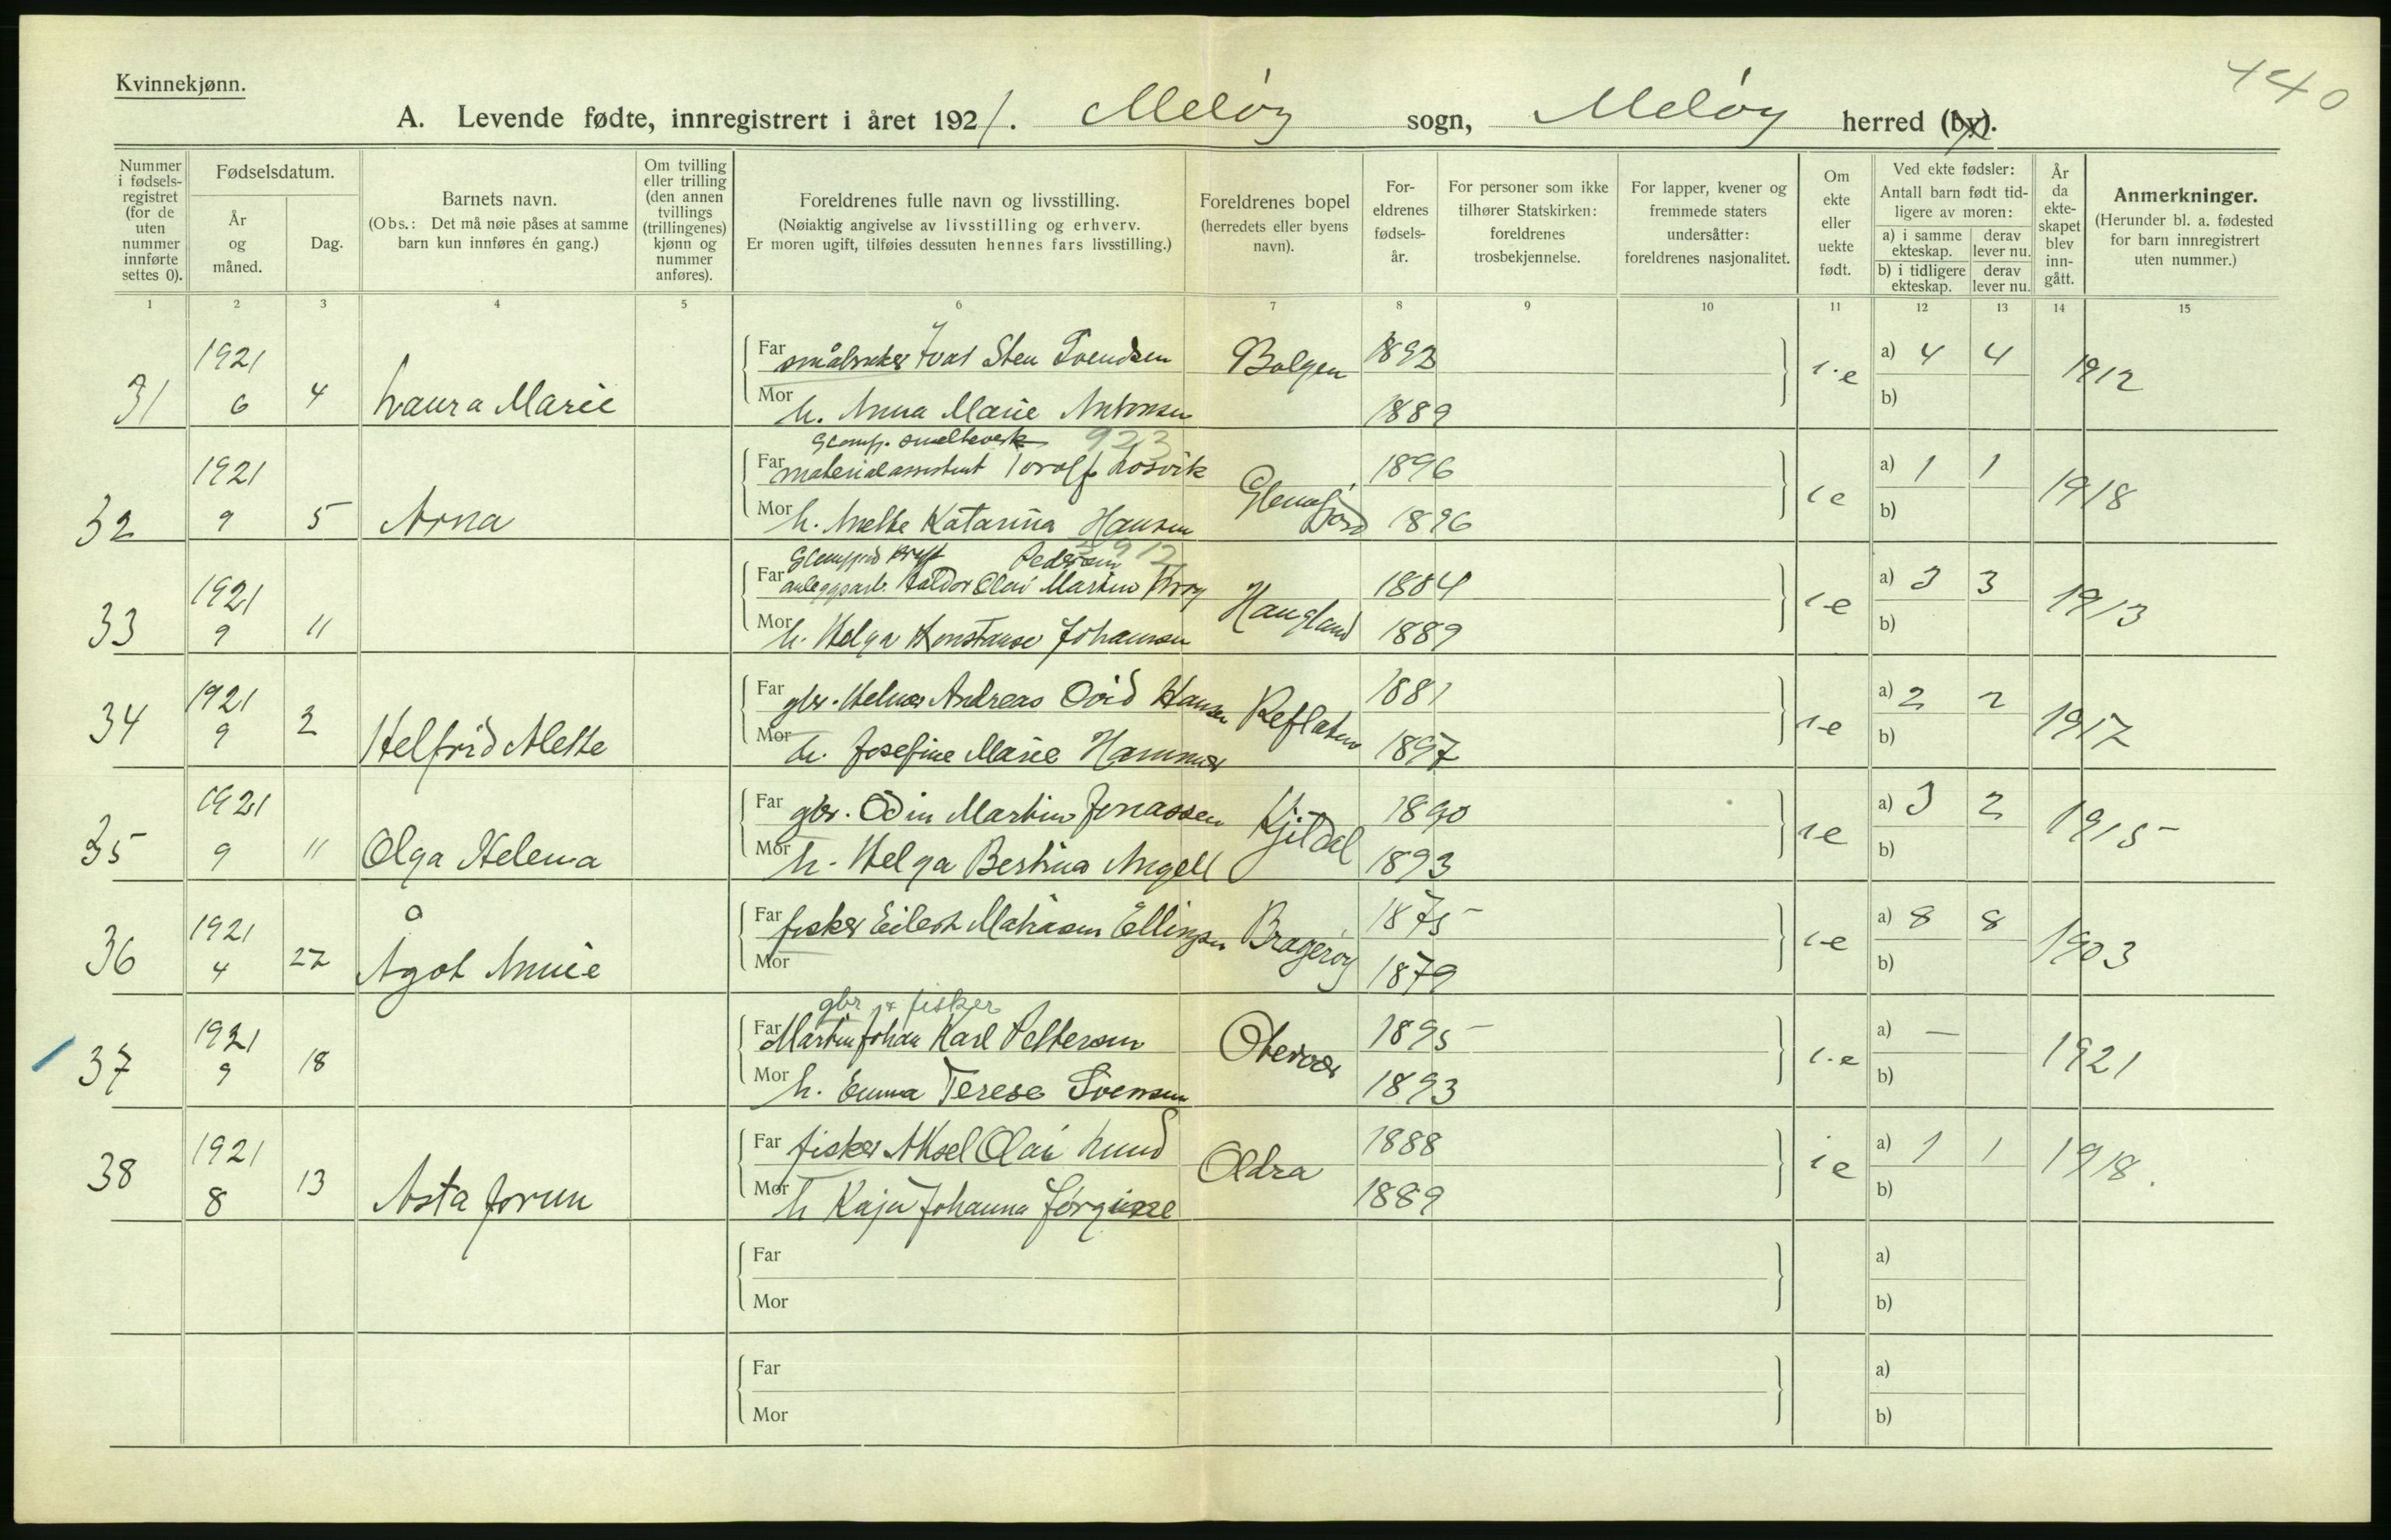 Kvinnekjønn.
440
A. Levende fødte, innregistrert i året 1921. Meløy sogn, Meløy herred (by).
Nummer i fødsels-registret (for de uten nummer innførte settes 0).
Fødselsdatum.
År og måned.
Dag.
Barnets navn.
(Obs.: Det må nøie påses at samme barn kun innføres én gang.)
Om tvilling eller trilling (den annen tvillings (trillingenes) kjønn og nummer anføres).
Foreldrenes fulle navn og livsstilling.
(Nøiaktig angivelse av livsstilling og erhverv.
Er moren ugift, tilføies dessuten hennes fars livsstilling.)
Foreldrenes bopel (herredets eller byens navn).
For-eldrenes fødsels-år.
For personer som ikke tilhører Statskirken: foreldrenes trosbekjennelse.
For lapper, kvener og fremmede staters undersåtter: foreldrenes nasjonalitet.
Om ekte eller uekte født.
Ved ekte fødsler:
Antall barn født tid-ligere av moren:
a) i samme ekteskap.
derav lever nu.
b) i tidligere ekteskap.
derav lever nu.
År da ekte-skapet blev inn-gått.
Anmerkninger.
(Herunder bl. a. fødested for barn innregistrert uten nummer.)
1 2 3 4 5 6 7 8 9 10 11 12 13 14 15
31 1921 6 4 Laura Marie
Far småbruker Ivar Sten Svendsen Bolgen 1892 i.e a) 4 4 1912
Mor h. Anna Marie Antonsen 1889 b)
Glomfj. smelteverk 923
32 1921 9 5 Arna
Far materialassistent Torolf Losvik Glomfjord 1896 i e a) 1 1 1918
Mor h. Mette Katarina Hansen 1896 b)
Pedersen
33 1921 9 11
Far anleggsarb. Haldor Olai Martin Haugland 1884 i-e a) 3 3 1913
Mor h. Helga Konstanse Johansen 1889 b)
34 1921 9 2 Helfrid Mette
Far gbr. Helmer Andreas Hansen Reflaten 1881 i-e a) 2 2 1917
Mor h. Josefine Marie Hammer 1897 b)
35 1921 9 11 Olga Helena
Far gbr. Odin Martin Jonassen Kjildal 1890 i e a) 3 2 1915
Mor h. Helga Bertina Angell 1893 b)
36 1921 4 22 Ågot Annie
Far fisker Eilert Matiasen Ellingsen Bragerøy 1875 i-e a) 8 8 1903
Mor 1879 b)
gbr & fisker
37 1921 9 18
Far Martin Johan Karl Pettersen Otervær 1895 i.e a) — 1921
Mor h. Emma Terese Svensen 1893 b)
38 1921 8 13 Asta Jorun
Far fisker Aksel Olai Lund Aldra 1888 i e a) 1 1 1918.
Mor h Kaja Johanna 1889 b)
Far a)
Mor b)
Far a)
Mor b)